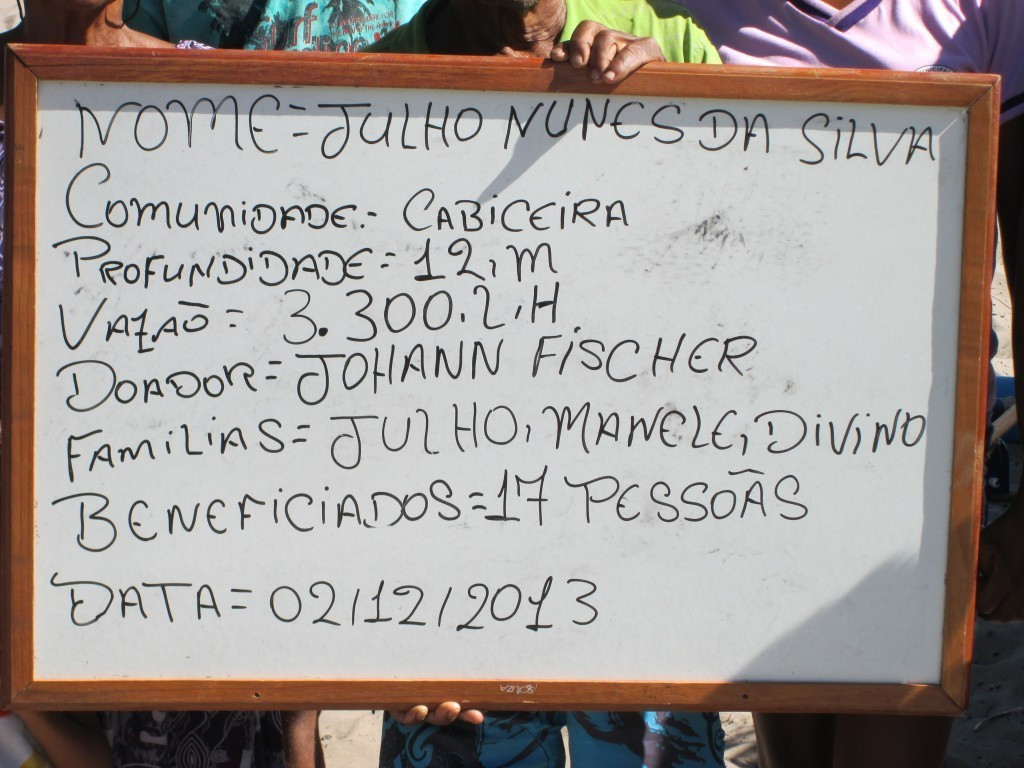 NOME=JULHO NUNES DA SILVA
COMUNIDADE- CABICEIRA
PROFUNDIDADE=12,M
VAZAÕ= 3.300.L.H
DOADOR=JOHANN FISCHER
FAMILIAS=JULHO, MANELE, DIVINO
BENEFICIADOS=17 PESSOÃS
DATA=02/12/2013
SOUZA